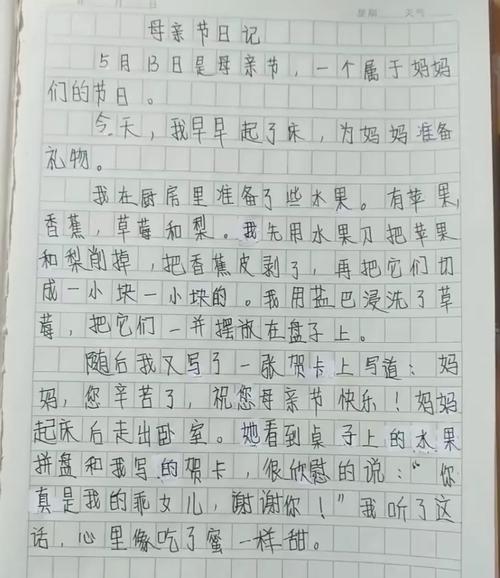 星期 天气
母亲节日记
5月13日是母亲节，一个属于妈妈
们的节日。
今天，我早早起了床，为妈妈准备
礼物。
我在厨房里准备了些水果。有苹果，
香蕉，草莓和梨。我先用水果刀把苹果
和梨削掉，把香蕉皮剥了，再把它们切
成一小块一小块的。我用盐巴浸洗了草
莓，把它们一并摆放在盘子上。
随后我又写了一张贺卡上写道：妈
妈，您辛苦了，祝您母亲节快乐！妈妈
起床后走出卧室。她看到桌子上的水果
拼盘和我写的贺卡，很欣慰的说：“你
真是我的乖女儿，谢谢你！”我听了这
话，心里像吃了蜜一样甜。